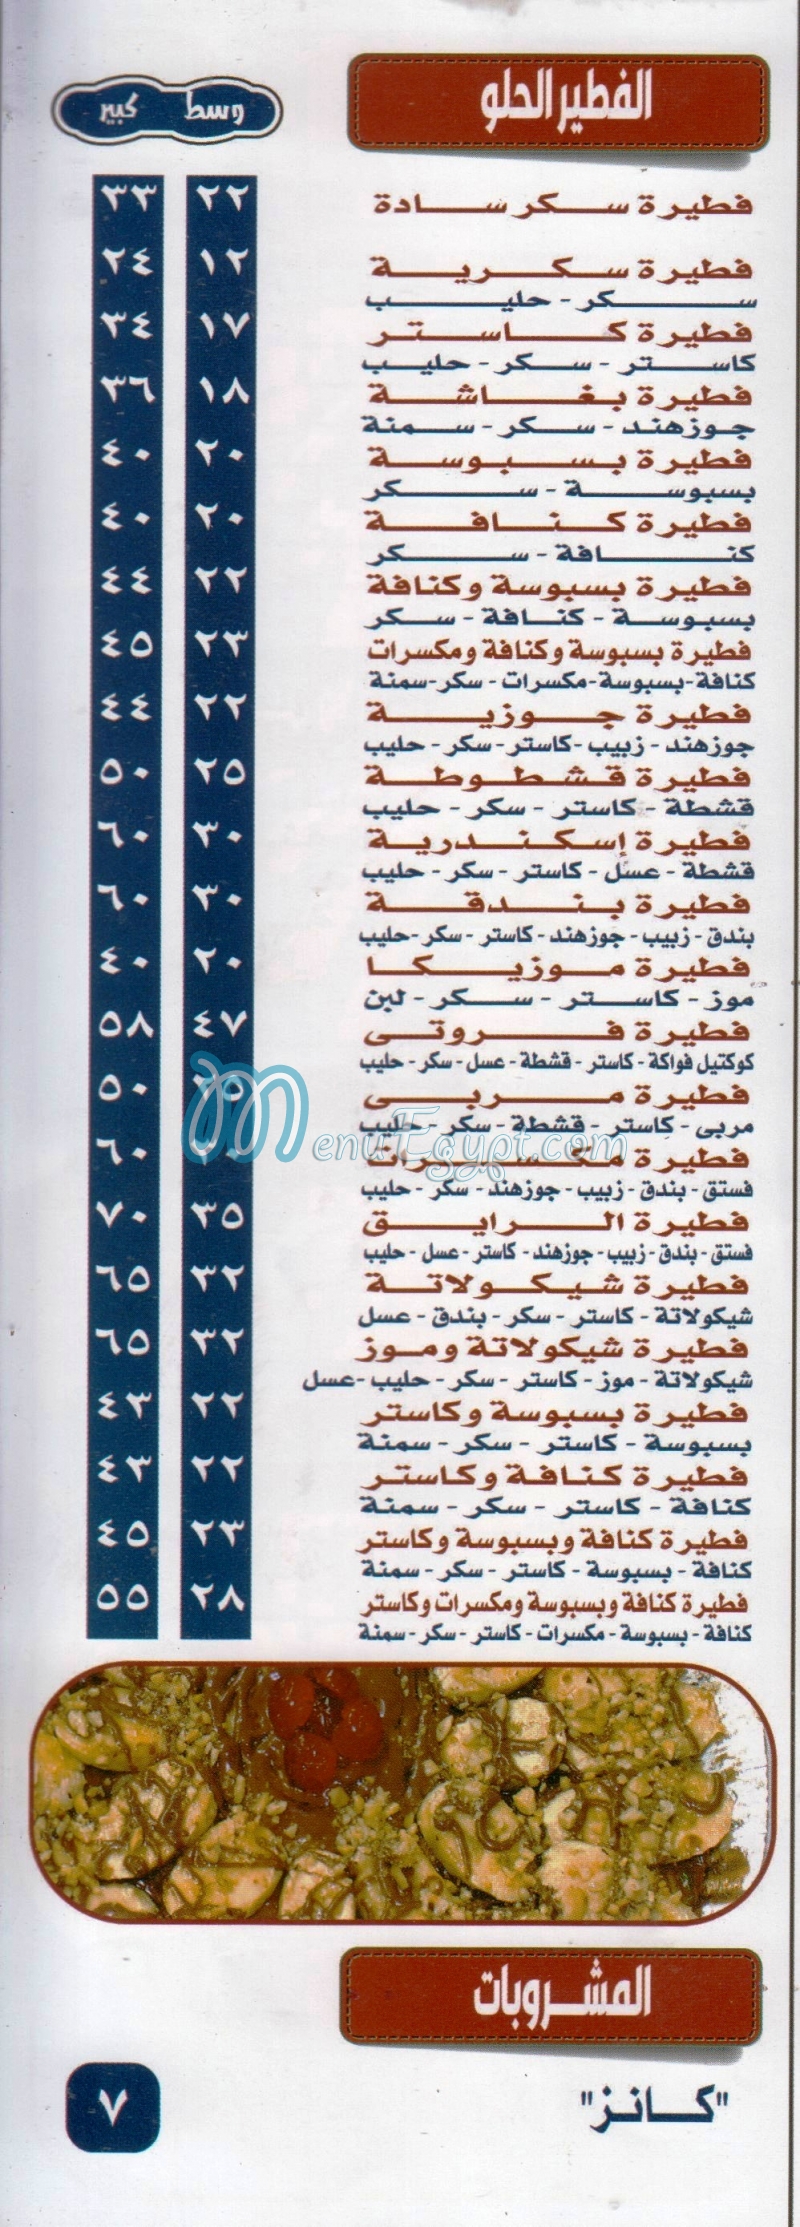 الفطير الحلو
وسط كبير
فطيرة سكر سادة ٢٢ ٣٣
فطيرة سكرية ١٢ ٢٤
سكر - حليب
فطيرة كاستر ١٧ ٣٤
كاستر - سكر - حليب
فطيرة بغاشة ١٨ ٣٦
جوزهند - سكر - سمنة
فطيرة بسبوسة ٢٠ ٤٠
بسبوسة - سكر
فطيرة كنافة ٢٠ ٤٠
كنافة - سكر
فطيرة بسبوسة وكنافة ٢٢ ٤٤
بسبوسة - كنافة - سكر
فطيرة بسبوسة وكنافة ومكسرات ٢٣ ٤٥
كنافة-بسبوسة-مكسرات - سكر-سمنة
فطيرة جوزية ٢٢ ٤٤
جوزهند - زبيب -كاستر-سكر - حليب
فطيرة قشطوطة ٢٥ ٥٠
قشطة - كاستر - سكر - حليب
فطيرة إسكندرية ٣٠ ٦٠
قشطة - عسل - كاستر - سكر - حليب
فطيرة بندقة ٣٠ ٦٠
بندق - زبيب - جوزهند - كاستر - سكر -حليب
فطيرة موزيكا ٢٠ ٤٠
موز - كاستر - سكر - لبن
فطيرة فروتى ٤٧ ٥٨
كوكتيل فواكة - كاستر - قشطة - عسل - سكر - حليب
فطيرة مربى ٢٥ ٥٠
مربى - كاستر - قشطة - سكر - حليب
MenuEgypt.com
فطيرة مكسرات ٦٠
فستق - بندق - زبيب - جوزهند - سكر - حليب
فطيرة الرايق ٣٥ ٧٠
فستق - بندق - زبيب - جوزهند - كاستر - عسل - حليب
فطيرة شيكولاتة ٣٢ ٦٥
شيكولاتة - كاستر - سكر - بندق - عسل
فطيرة شيكولاتة وموز ٣٢ ٦٥
شيكولاتة - موز - كاستر - سكر - حليب -عسل
فطيرة بسبوسة وكاستر ٢٢ ٤٣
بسبوسة - كاستر - سكر - سمنة
فطيرة كنافة وكاستر ٢٢ ٤٣
كنافة - كاستر - سكر - سمنة
فطيرة كنافة وبسبوسة وكاستر ٢٣ ٤٥
كنافة - بسبوسة - كاستر - سكر - سمنة
فطيرة كنافة وبسبوسة ومكسرات وكاستر ٢٨ ٥٥
كنافة - بسبوسة - مكسرات - كاستر - سكر - سمنة
المشروبات
"كانز" ٧